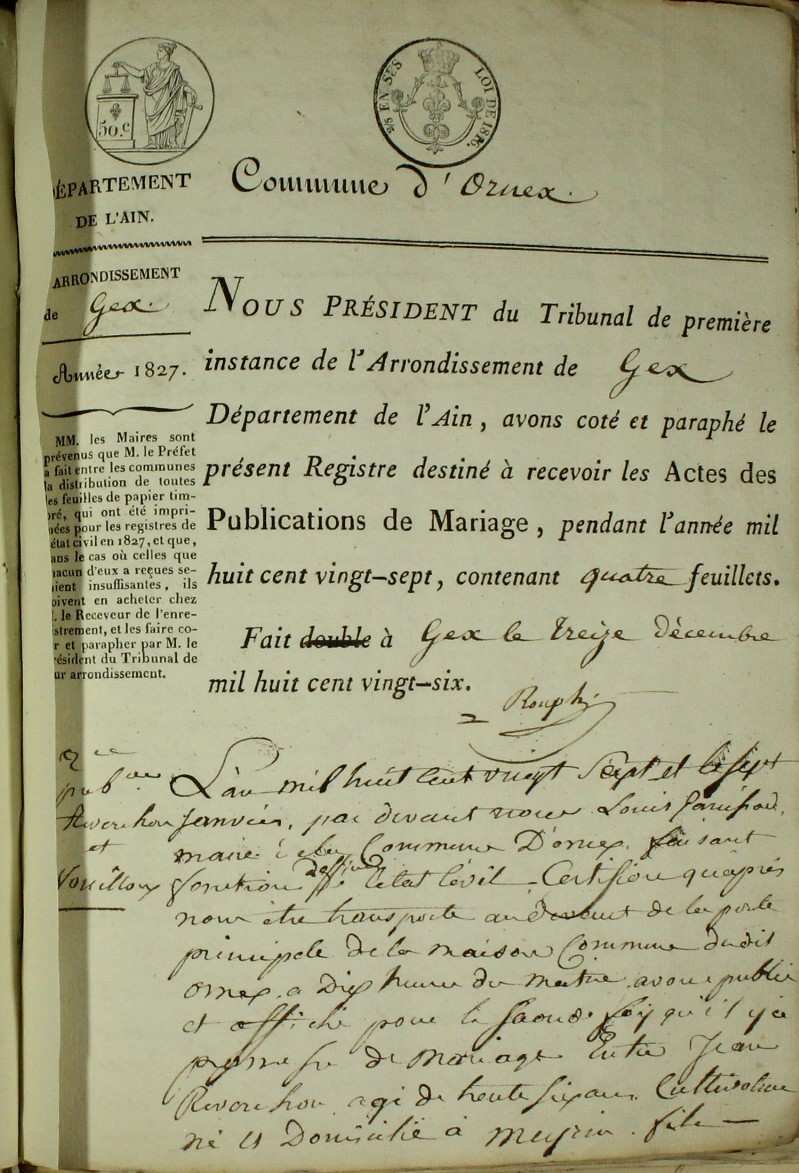 50.c
25 EN SES
LOI DE 1816.
DÉPARTEMENT
DE L'AIN.
Commune d'Ornex.
ARRONDISSEMENT
de Gex.
Année 1827.
MM. les Maires sont
prévenus que M. le Préfet
a fait entre les communes
la distribution de toutes
les feuilles de papier tim-
bré, qui ont été impri-
mées pour les registres de
état civil en 1827, et que,
ans le cas où celles que
hacun d'eux a reçues se-
oient insuffisantes, ils
oivent en acheter chez
. le Receveur de l'enre-
strement, et les faire co-
r et parapher par M. le
résident du Tribunal de
ur arrondissement.
NOUS PRÉSIDENT du Tribunal de première
instance de l'Arrondissement de Gex
Département de l'Ain, avons coté et paraphé le
présent Registre destiné à recevoir les Actes des
Publications de Mariage, pendant l'année mil
huit cent vingt-sept, contenant quatre feuillets.
Fait double à Gex le treize décembre
mil huit cent vingt-six.
2
pub
et
L'an mil huit cent vingt sept et le sept
Janvier, par devant nous Louis
maire de la Commune D'ornex faisant
fonction d'Etat Civil Certifions qu'après
nous être transporté au devant de la porte
principale de la maison Commune dudit
ornex a Dix heure du matin avons publié
et affiché pour la qu'il y a
promesse de mariage Entre Jean
agé de trente six ans Cultivateur
né et Domicilié à meyrin fils